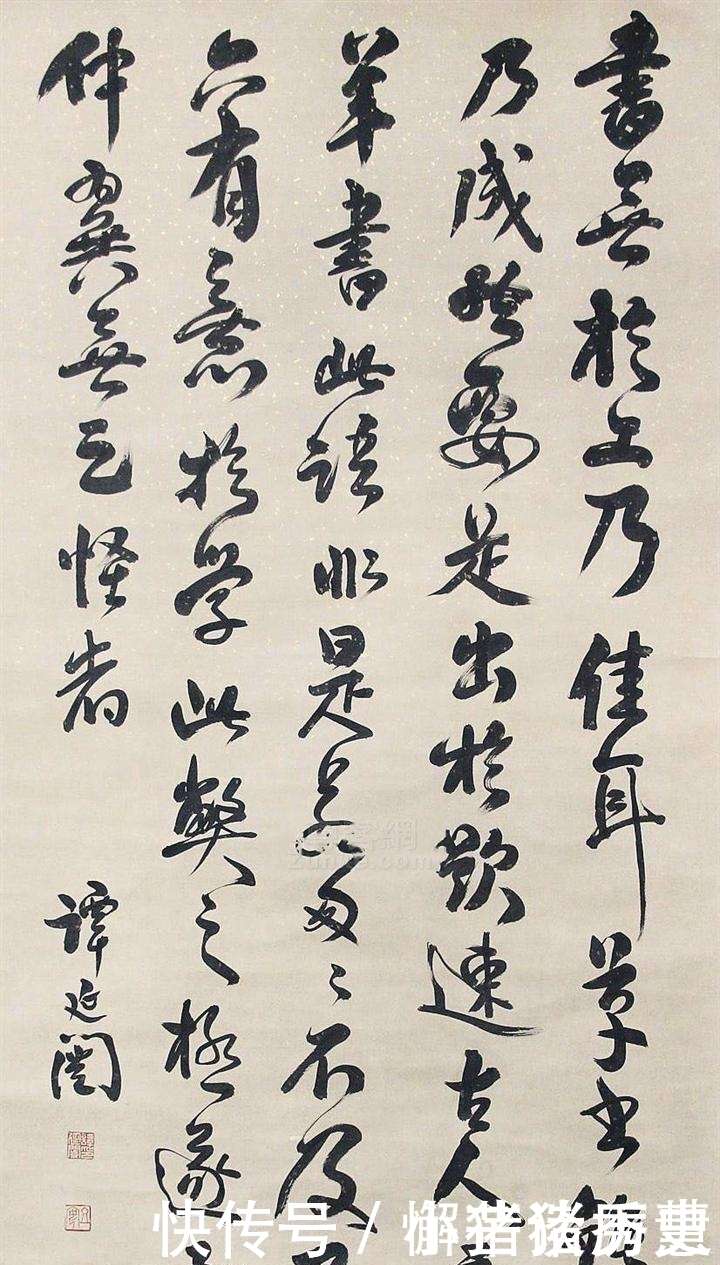 書無於乃佳耳草书
乃成然要是出於欲速古人
草書此語非是若匆〻不及
亦有意於學此弊之極遂
仲翼無足怪者
譚延闓
快传号 /